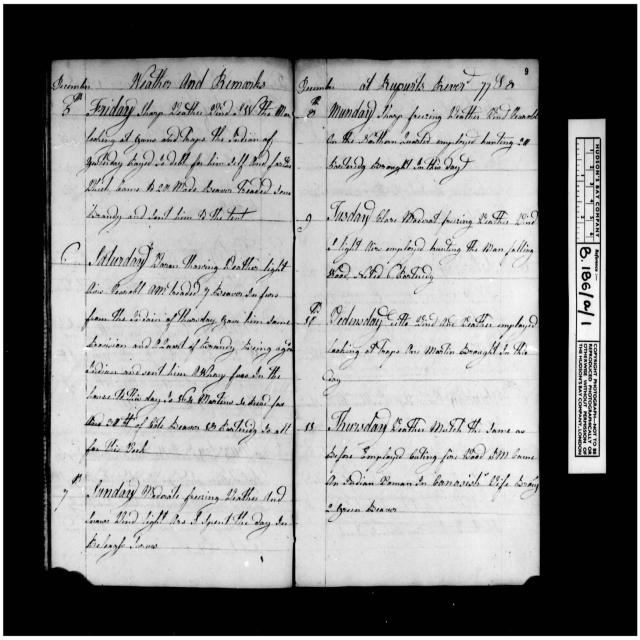 9
December Weather And Remarks
5th Friday Sharp Weather Wind SW the Men
looking at Guns and Traps the Indian of
Yesterday traded
Which Came to 20 Made Beaver Traded some
Brandy and sent him to the tent
6 Saturday Warm Thawing Weather light
Airs traded 7 Beaver In furs
from the Indian of thursday, Gave him some
Provision and of Brandy Being a good
Indian and sent him Away furs In the
house to this day Is 164 Martins
And 20 lb of Beaver 83 Partridg In all
for this Week
7th Sunday Moderate freezing Weather And
Snow Wind light Airs I Spent the day In
December at Ruperts River 77 & 8
8th Munday Sharp freezing Weather Wind
On the Northern Quarter employed hunting 20
Partridg Brought In this day
9 Tusday Clear Moderat freezing Weather Wind
& light Airs employed hunting the Man falling
Wood 6 Partridg
10th Wednesday Little Wind Weather employed
looking at Traps On Martin Brought In this
day
11 Thursday Weather Mutch the same as
Before Employed Cuting fire Wood PM Came
An Indian Woman In Wife Brout
2 Green Beaver
HUDSON'S BAY COMPANY
Reference:—
B.186/a/1
COPYRIGHT PHOTOGRAPH—NOT TO BE
REPRODUCED PHOTOGRAPHICALLY OR
OTHERWISE WITHOUT PERMISSION OF
THE HUDSON'S BAY COMPANY, LONDON